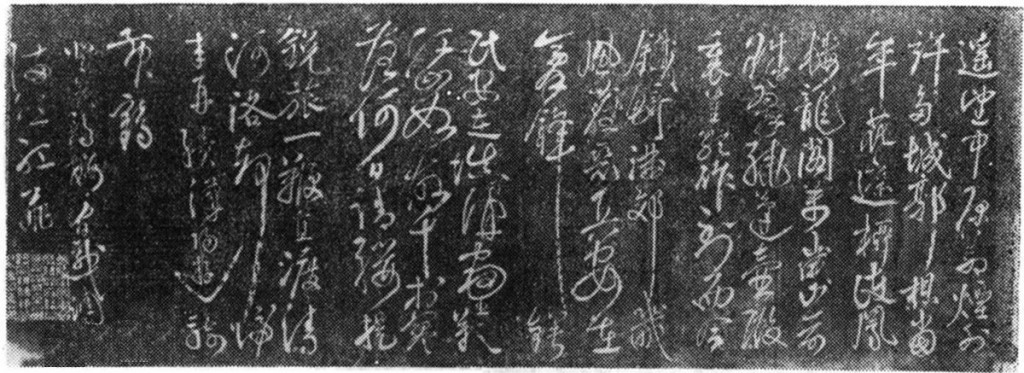 遥望中原荒煙外
許多城郭想當
年花遮柳護鳳
樓龍閣萬歲山前
珠翠繞蓬壺殿
裏笙歌作到而今
鐵騎滿郊畿
風塵惡兵安在
膏鋒鍔
民安在填溝壑歎
江山如故千村寥
落何日請纓提
銳旅一鞭直渡清
河洛却歸
來再續漢陽遊騎
黃鶴
登黃鶴樓有感調
滿江紅